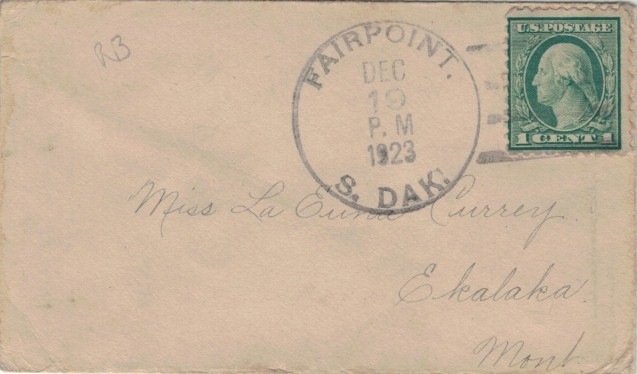 RB
FAIRPOINT.
DEC
19
P. M
1923
S. DAK.
U.S. POSTAGE
1 CENT 1
Miss La Euna Currey.
Ekalaka.
Mont.